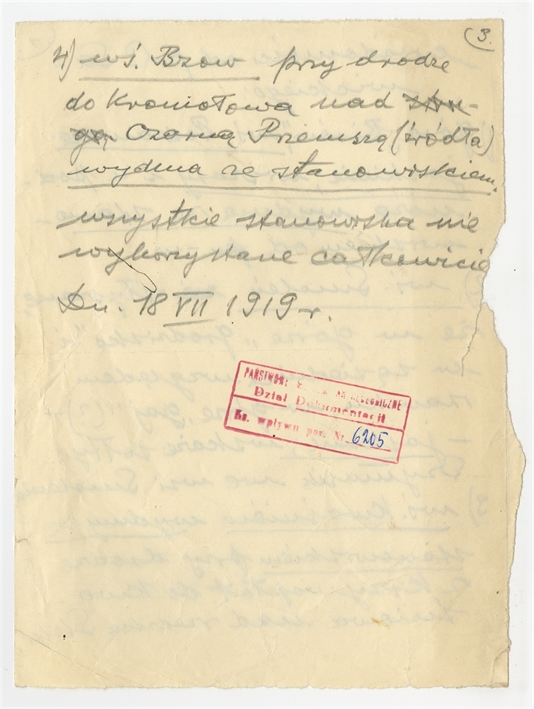 3.
4) wś. Bzow przy drodze
do Kromołowa nad stru-
gą Czarną Przemszą (źródła)
wydma ze stanowiskiem.
wszystkie stanowiska nie
wykorzystane całkowicie
Dn. 18 VII 1919 r.
PAŃSTWOWE MUZEUM ARCHEOLOGICZNE
Dział Dokumentacji
Ks. wpływu poz. Nr. 6205